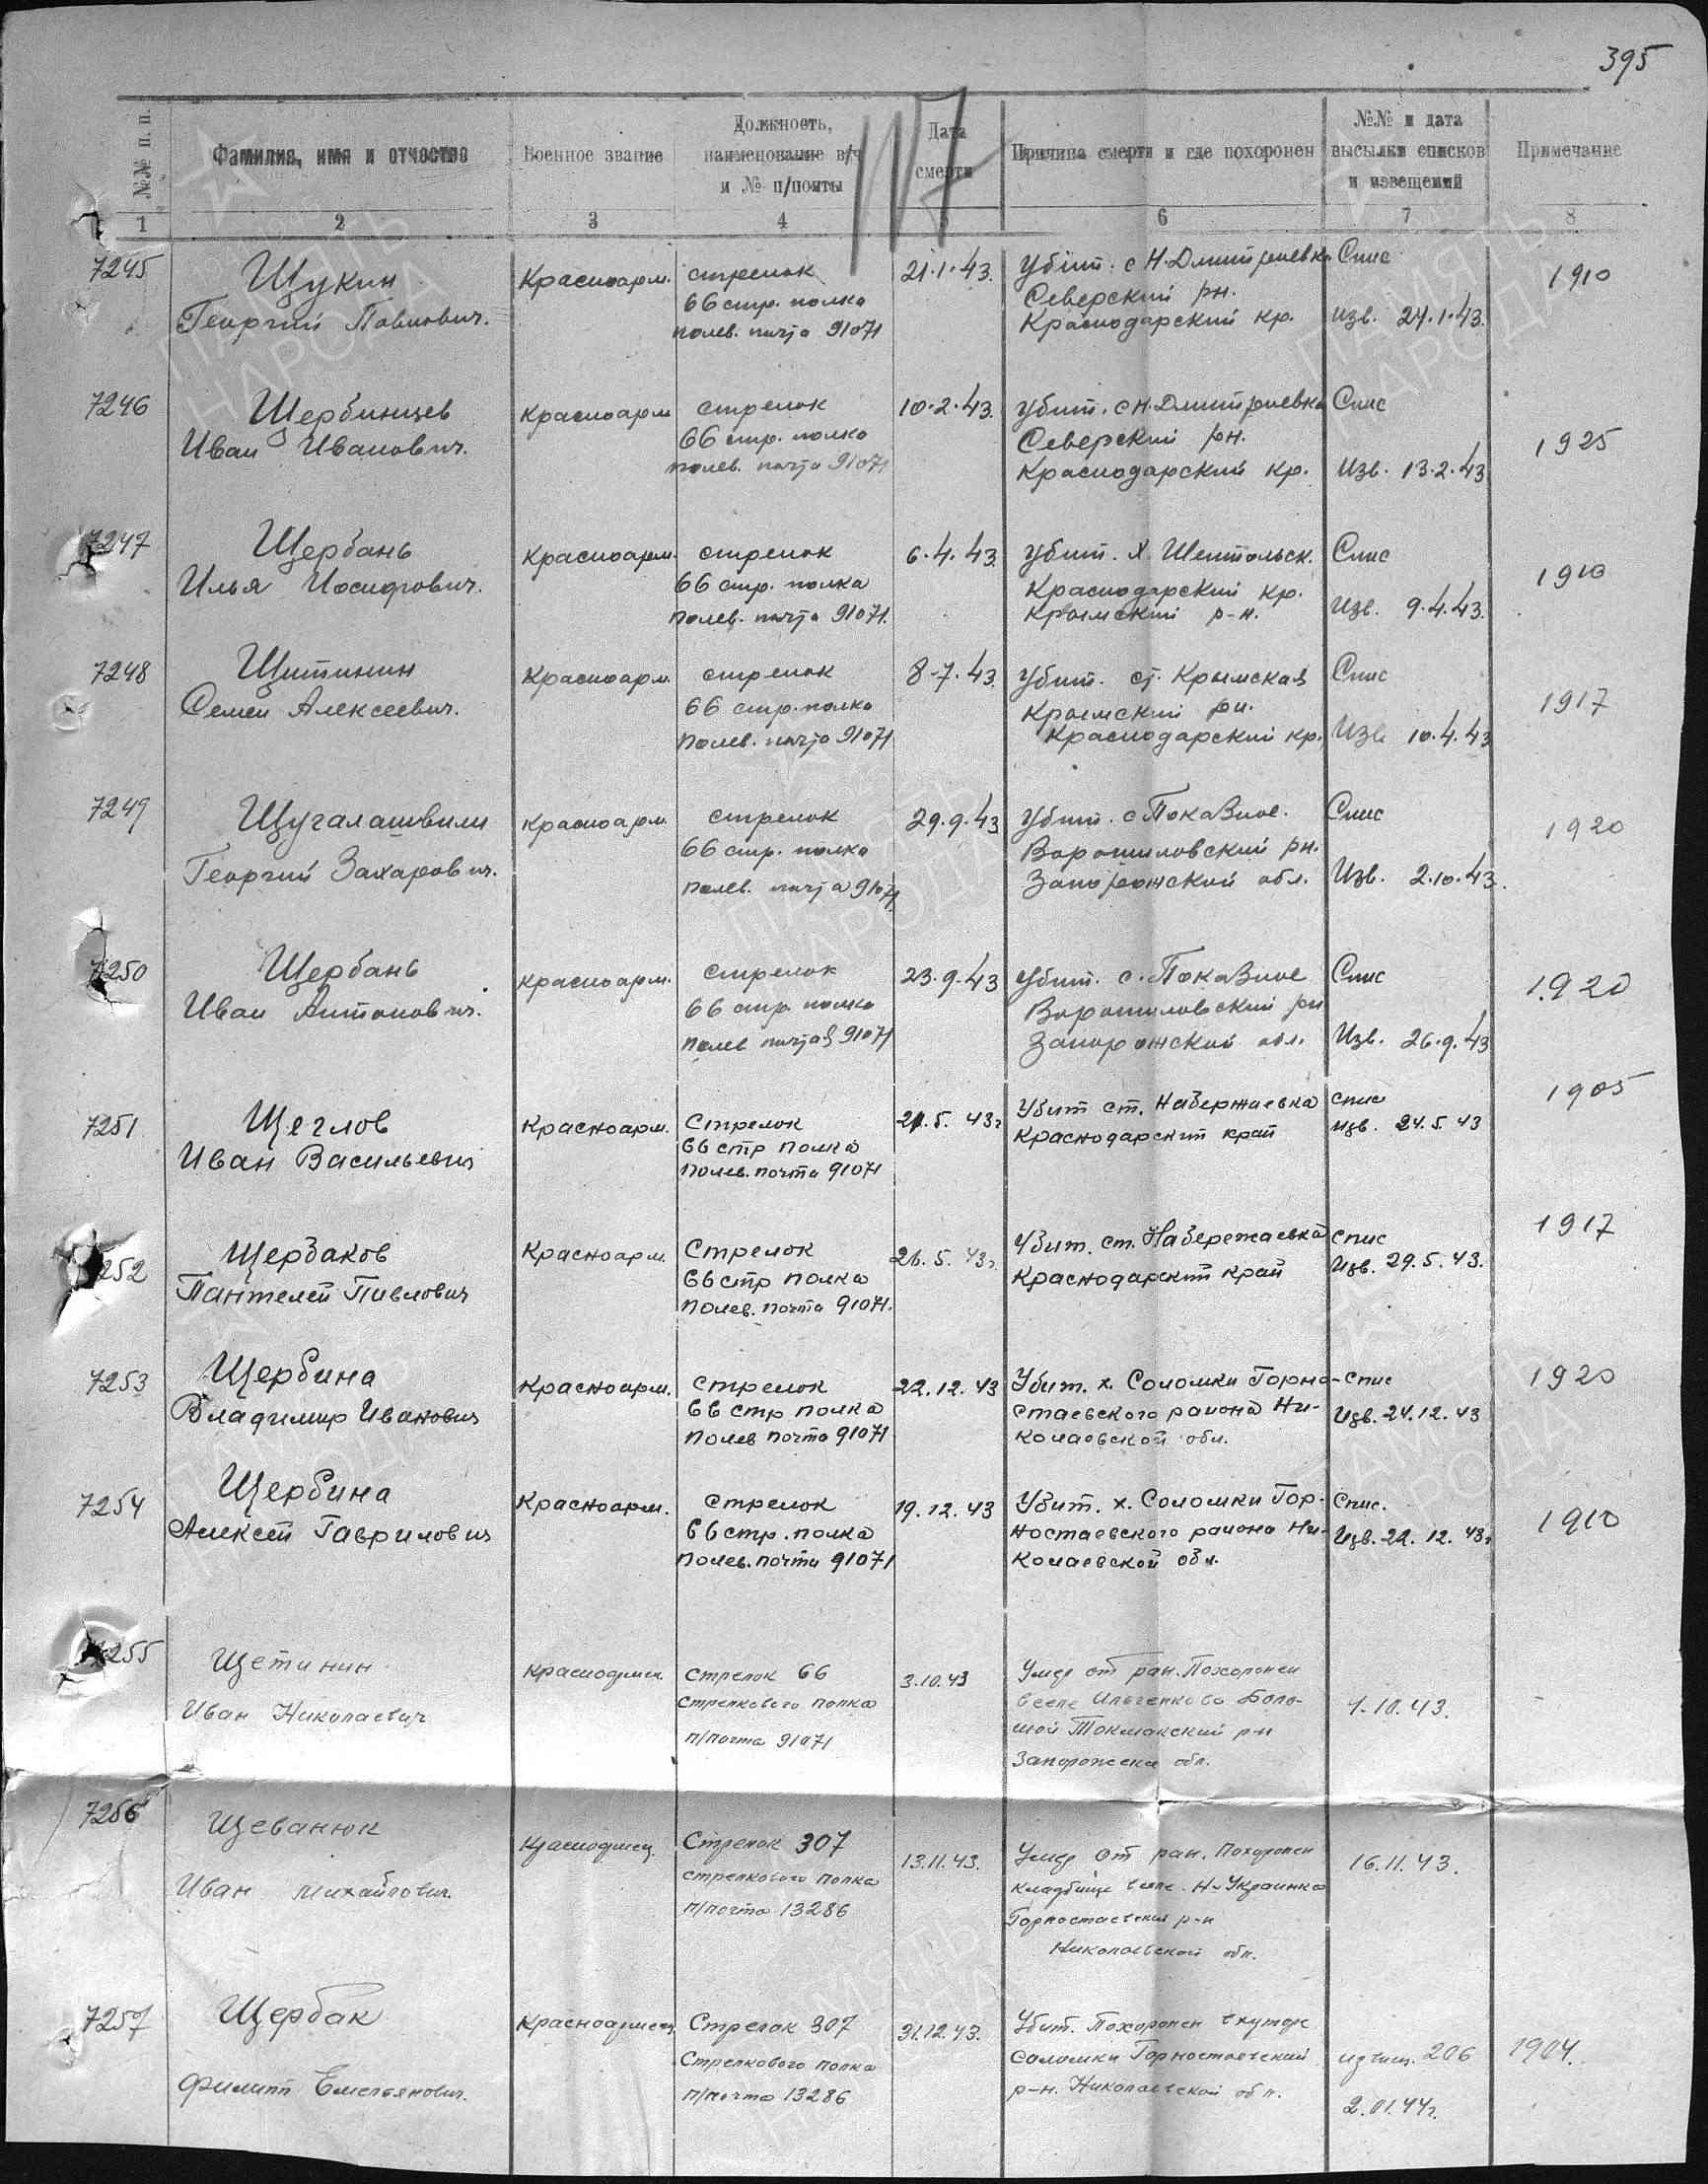 395
№№ п. п.
Фамилия, имя и отчество
Военное звание
Должность,
наименование в/ч
и № п/почты
Дата
смерти
Причина смерти и где похоронен
№№ и дата
высылки списков
и извещений
Примечание
1 2 3 4 5 6 7 8
7245 Щукин Красноарм. стрелок 21.1.43. Убит. с Н. Дмитриевка Спис 1910
Георгий Павлович. 66 стр. полка Северский рн.
полев. почта 91071 Краснодарский кр. Изв. 24.1.43.
7246 Щербинцев Красноарм стрелок 10.2.43. Убит. с Н. Дмитриевка Спис 1925
Иван Иванович. 66 стр. полка Северский рн.
полев. почта 91071 Краснодарский кр. Изв. 13.2.43
7247 Щербань Красноарм. стрелок 6.4.43. Убит. х. Спис 1910
Илья Иосифович. 66 стр. полка Краснодарский кр.
полев. почта 91071. Крымский р-н. Изв. 9.4.43.
7248 Щитинин Красноарм. стрелок 8-7.43. Убит. ст. Крымская Спис 1917
Семен Алексеевич. 66 стр. полка Крымский рн.
полев. почта 91071 Краснодарский кр. Изв 10.4.43
7249 Щугалашвили Красноарм. стрелок 29.9.43 Убит. с Спис 1920
Георгий Захарович. 66 стр. полка Ворошиловский рн.
полев. почта 91071 Запорожский обл. Изв. 2.10.43.
7250 Щербань Красноарм. стрелок 23.9.43 Убит. с. Спис 1920
Иван Антонович. 66 стр. полка Ворошиловский рн
полев почта 91071 Запорожской обл. Изв. 26.9.43
7251 Щеглов Красноарм. Стрелок 21.5.43г Убит ст. спис 1905
Иван Васильевич 66 стр полка Краснодарский край изв. 24.5.43
полев. почта 91071
7252 Щербаков Красноарм. Стрелок 26.5.43г. Убит. ст. спис 1917
Пантелей Павлович 66 стр полка Краснодарский край Изв. 29.5.43.
полев. почта 91071.
7253 Щербина Красноарм. Стрелок 22.12.43 Убит. х. Соломки Горно- спис 1920
Владимир Иванович 66 стр полка стаевского района Ни- Изв. 24.12.43
полев почта 91071 колаевской обл.
7254 Щербина Красноарм. Стрелок 19.12.43 Убит. х. Соломки Гор- Спис. 1910
Алексей Гаврилович 66 стр. полка ностаевского района Ни- Изв. 22.12.43г
полев. почта 91071 колаевской обл.
7255 Щетинин Красноармеец Стрелок 66 3.10.43 Умер от ран. Похоронен
Иван Николаевич стрелкового полка в селе Ильченково Боль- 4.10.43.
п/почта 91071 шой Токмакский р-н
Запорожска обл.
7256 Щеванюк Красноармеец Стрелок 307 13.11.43. Умер от ран. Похоронен 16.11.43.
Иван Михайлович. стрелкового полка кладбище в селе Н-Украинка
п/почта 13286 Горностаевский р-н
Николаевской обл.
7257 Щербак Красноармеец Стрелок 307 31.12.43. Убит. Похоронен в хуторе
Филипп Емельянович. Стрелкового полка Соломки Горностаевский извещ. 206 1904.
п/почта 13286 р-н. Николаевской обл. 2.01.44г.
ПАМЯТЬ
НАРОДА